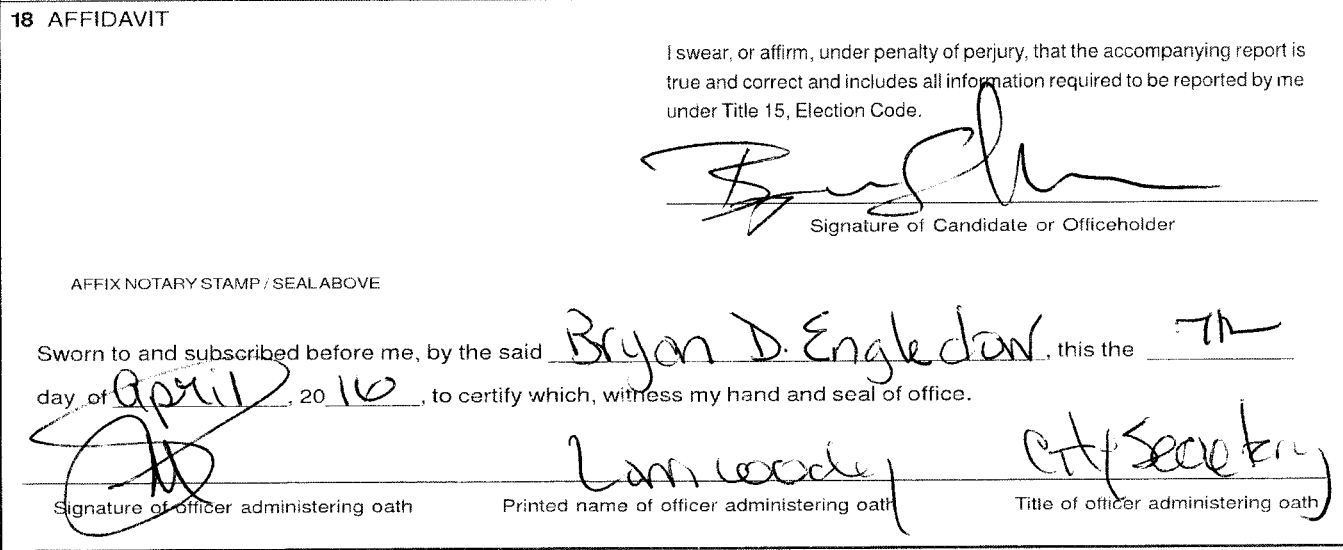 18 AFFIDAVIT
I swear, or affirm, under penalty of perjury, that the accompanying report is
true and correct and includes all information required to be reported by me
under Title 15, Election Code.
Signature of Candidate or Officeholder
AFFIX NOTARY STAMP / SEAL ABOVE
Sworn to and subscribed before me, by the said Bryan D. Engledow, this the 7th
day of April, 20 16, to certify which, witness my hand and seal of office.
City Secretary
Signature of officer administering oath Printed name of officer administering oath Title of officer administering oath